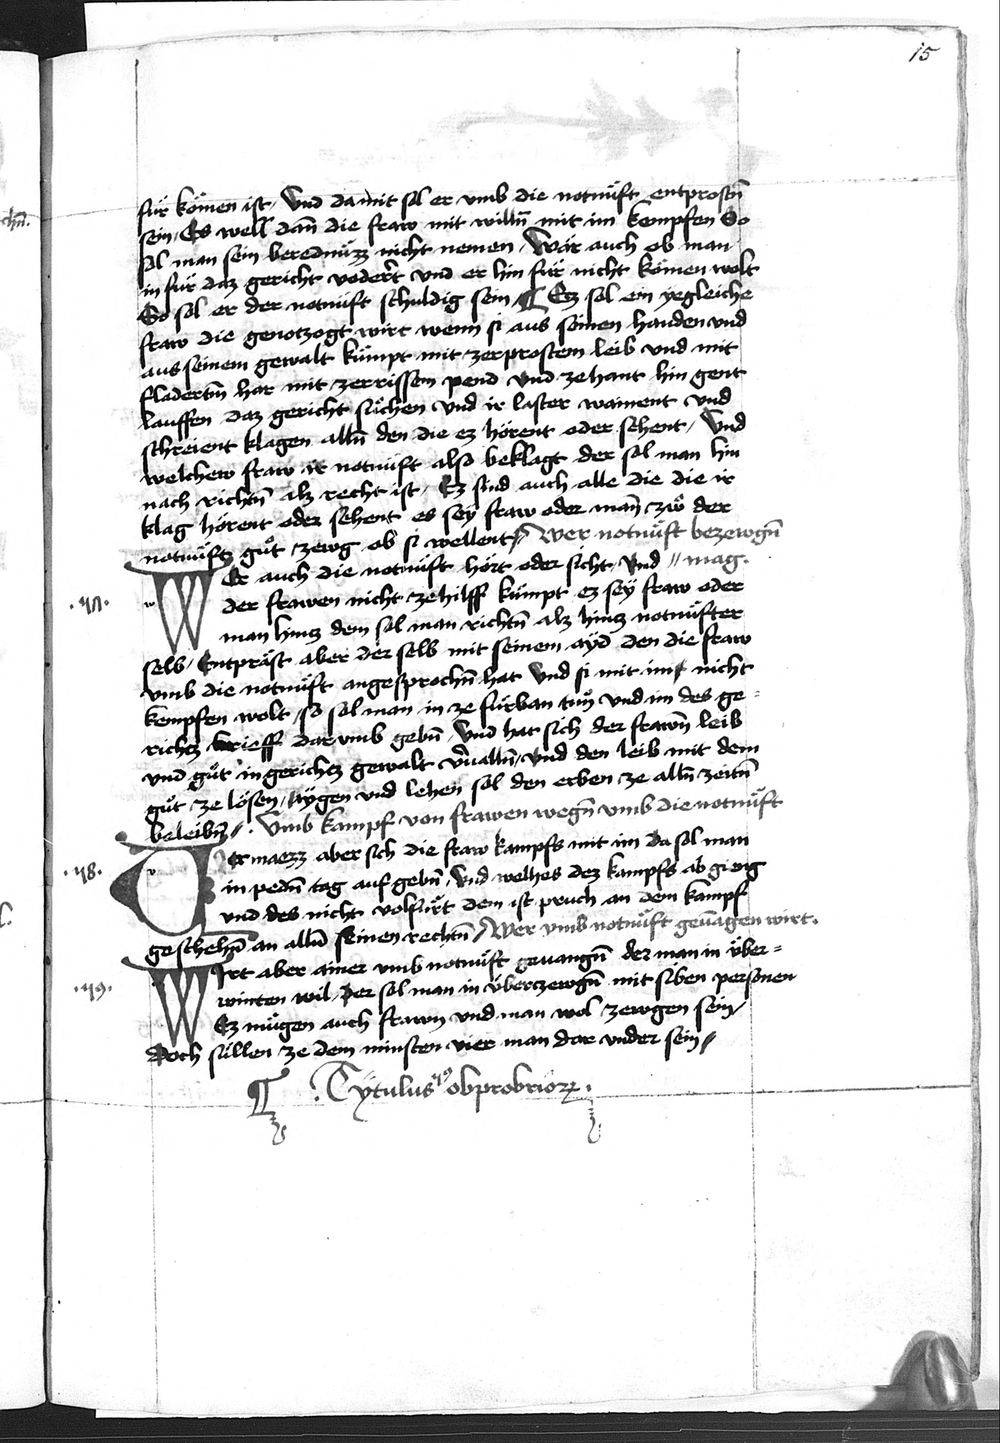 15
für kömen ist / Und damit sol er vmb die notnüft entprostñ
sein / Es well dañ die fraw mit willñ mit im kempfen So
sol man sein berednüzz nicht nemen / Wär auch ob man
in für daz gericht vodert vnd er hin für nicht kömen wolt
So sol er der notnüft schuldig sein / ¶ Ez sol ein yegleiche
fraw die genotzogt wirt wenn si aus seinen handen vnd
aus seinem gewalt kümpt mit zerprostem leib vnd mit
fladertm har mit zerrissem pend vnd zehant hin gent
lauffen daz gericht sůchen vnd ir laster wainent vnd
schreient klagen allñ den die ez hörent oder sehent / Und
welchew fraw ir notnüft also beklagt der sol man hin
nach richtñ alz recht ist / Ez sind auch alle die die ir
klag hörent oder sehent es sey fraw oder mañ zwo der
notnüft gůt zewg ob si wellent // Wer notnüft bezewgñ
WEr auch die notnüft hört oder sicht / vnd // mag.
.47.
der frawen nicht zehilff kümpt ez sey fraw oder
man hintz dem sol man richtñ alz hintz notnüfter
selb / Entpräst aber der selb mit seinem ayd den die fraw
vmb die notnüft angesprochñ hat Und si mit im nicht
kempfen wolt / so sol man in ze fürban tůn vnd im des ge=
richtz brieff dar vmb gebñ / Und hat sich der frawñ leib
vnd gůt in gerichtz gewalt vervallñ / vnd den leib mit dem
gůt ze lösen / Aygen vnd lehen sol den erben ze allñ zeitñ
beleibñ // . Vmb kampf von frawen wegñ vmb die notnüft
.48.
Vermaezz aber sich die fraw kampfs mit im da sol man
in pedñ tag auf gebñ / vnd welhes dez kampfs ab gieng
vnd des nicht volfůrt dem ist pruch an dem kampf
geschehñ an allñ seinen rechtñ / Wer vmb notnüft geuagen wirt.
.49.
WIrt aber ainer vmb notnüft geuangñ der man in über=
winten wil / Der sol man in überczewgñ mit siben personen
Ez mügen auch frawn vnd man wol zewgen sein /
Doch süllen ze dem minsten vier man dar vnder sein //
¶ . Tytulus obprobrioꝝ .